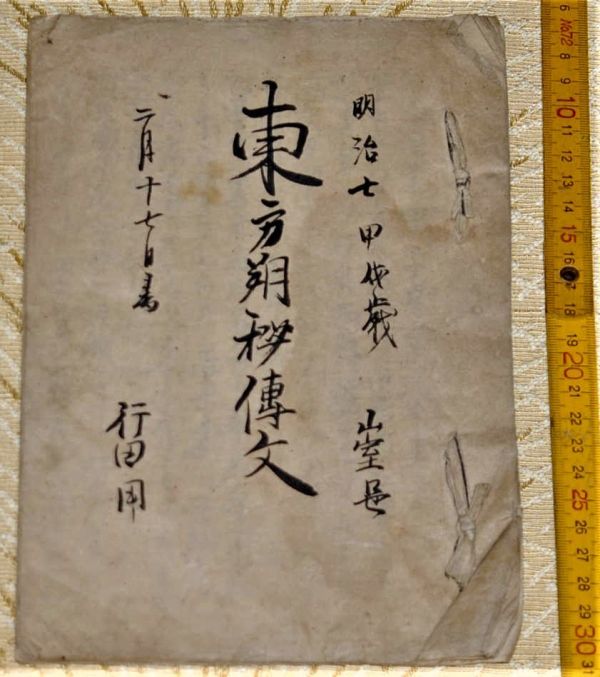 明治七 甲戌歳 山室邑
東方朔秘傳文
二月十七日書 行田用
6
No72
8
9
10
11
12
13
14
15
16
17
18
19
20
21
22
23
24
25
26
27
28
29
30
31